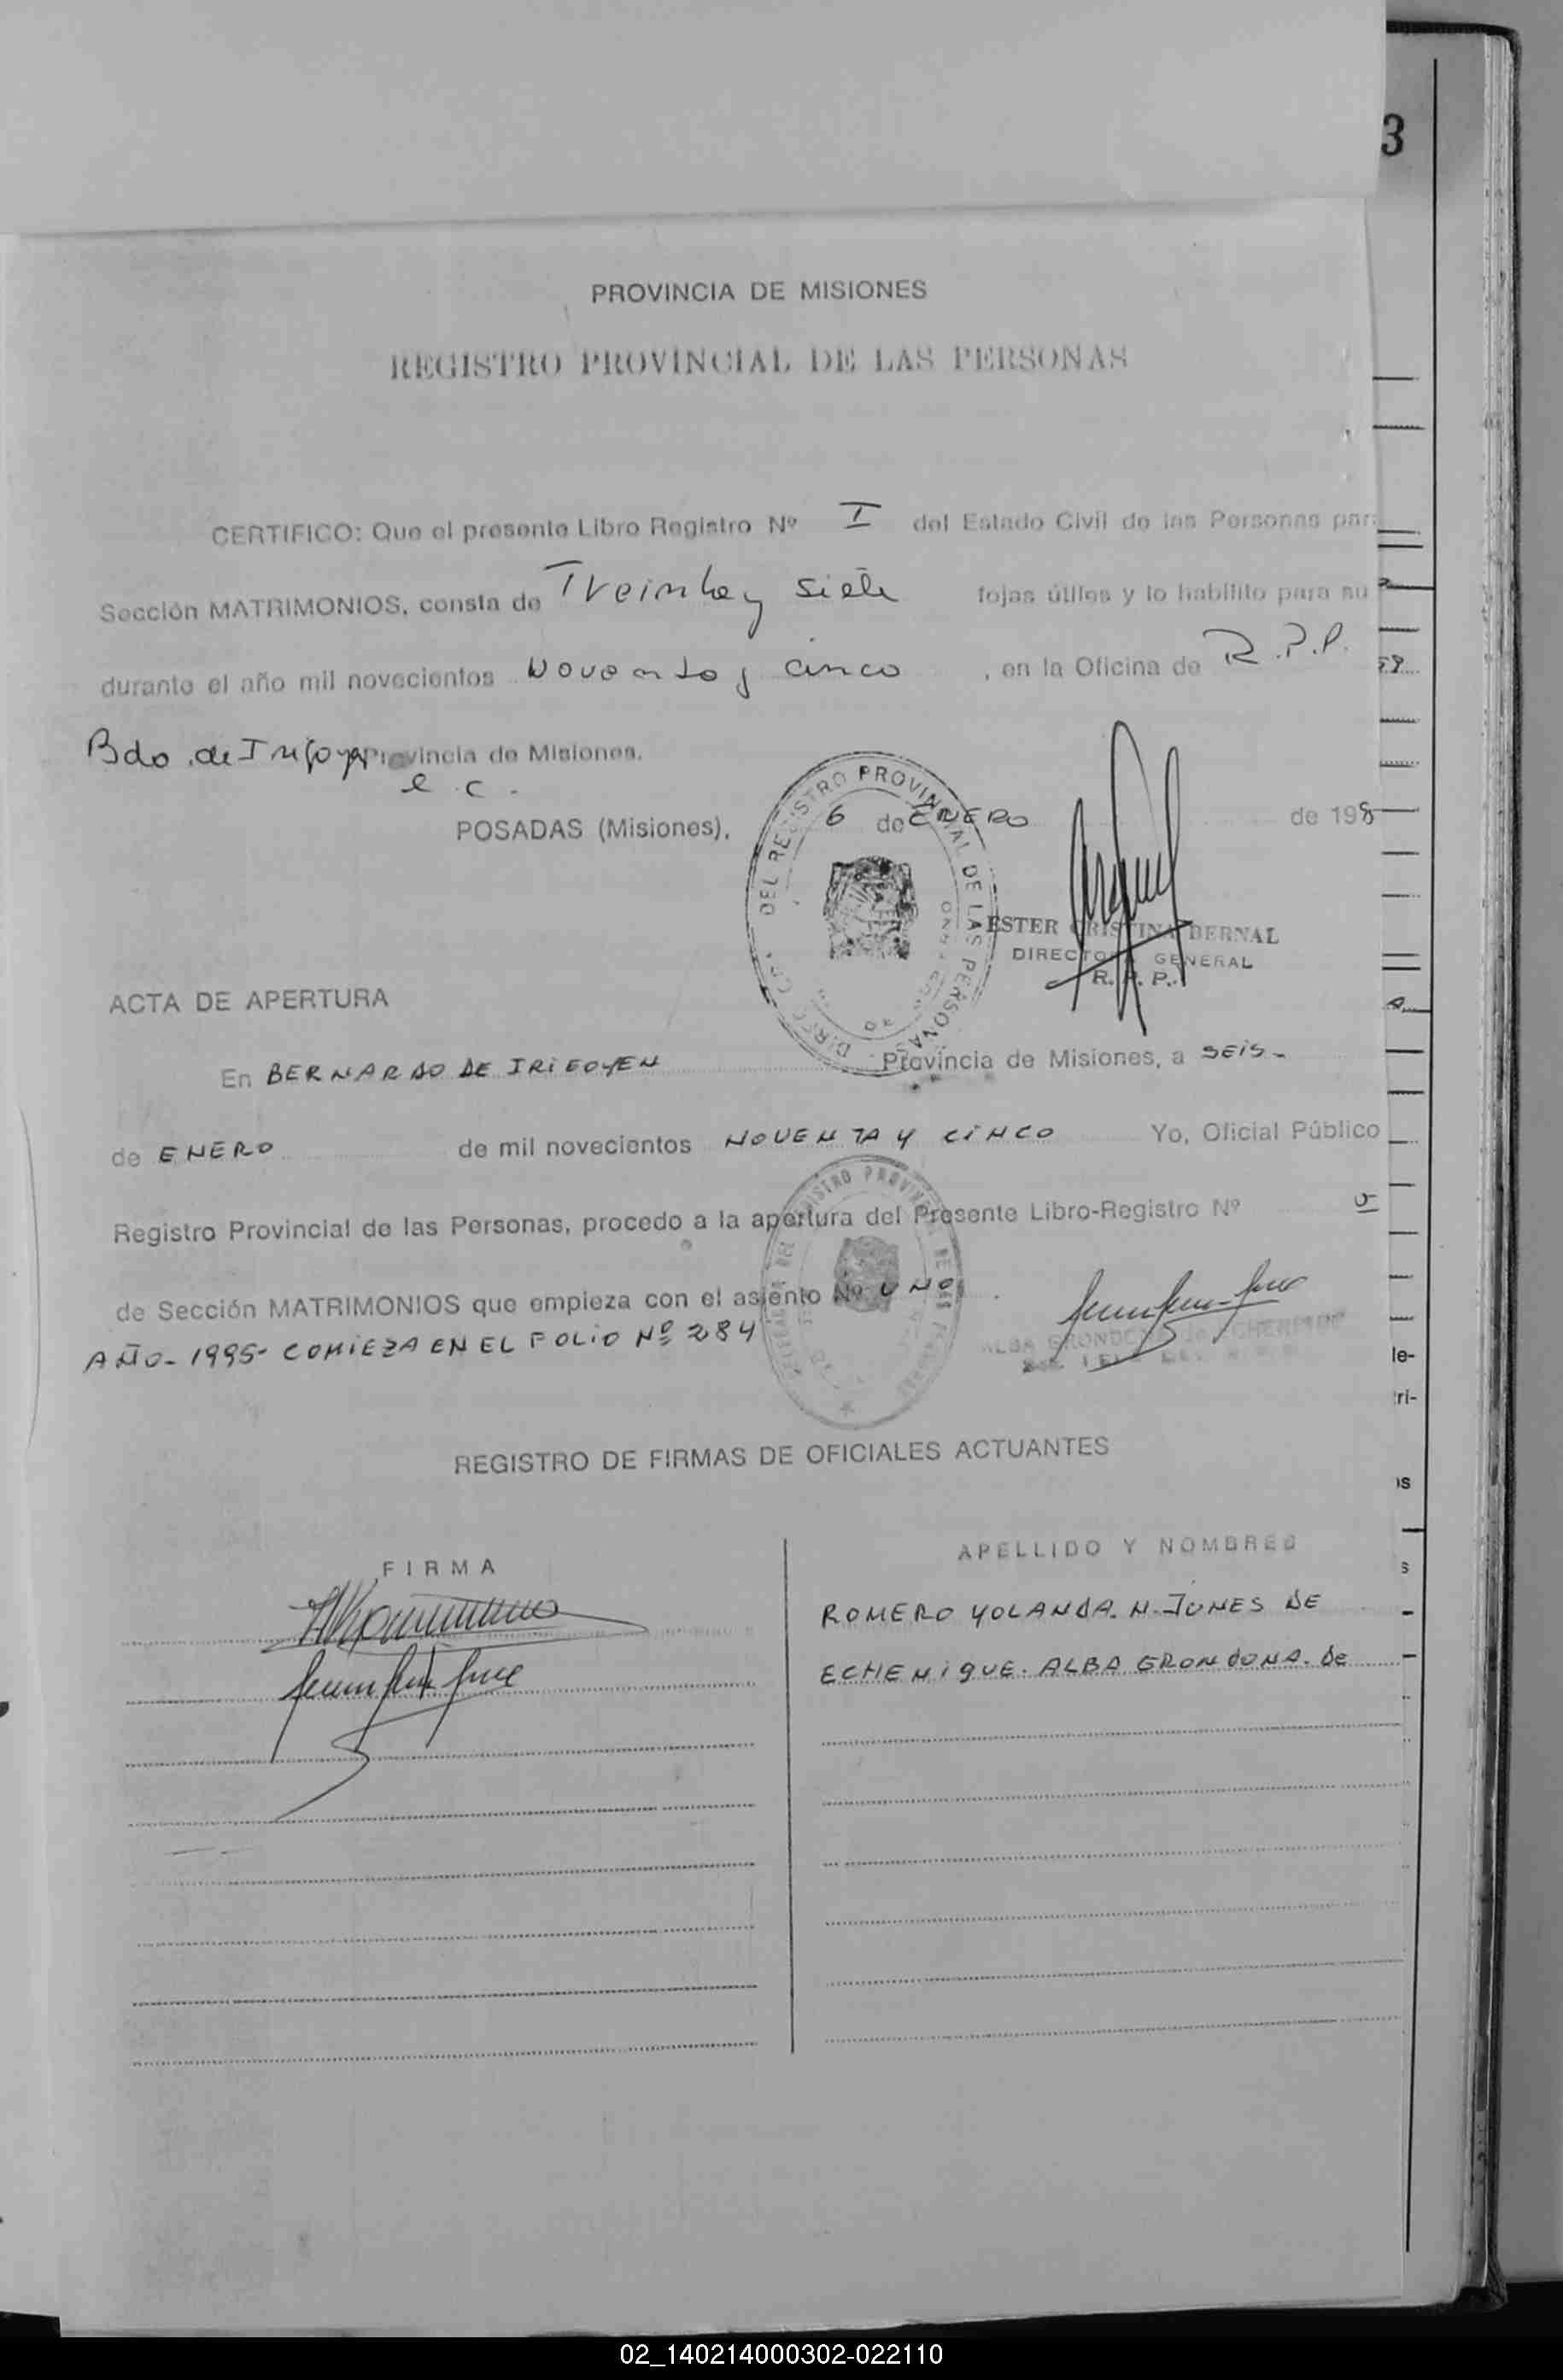 3
PROVINCIA DE MISIONES
REGISTRO PROVINCIAL DE LAS PERSONAS
CERTIFICO: Que el presente Libro Registro Nº I del Estado Civil de las Personas par
Sección MATRIMONIOS, consta de Treinta y siete fojas útiles y lo habilito para su
durante el año mil novecientos Noventa y cinco, en la Oficina de R.P.P.
Bdo. de Irigoyen Provincia de Misiones.
e.c.
POSADAS (Misiones), 6 de ENERO de 198
DEL REGISTRO PROVINCIAL DE LAS PERSONAS
ESTER CRISTINA BERNAL
DIRECTORA GENERAL
R. P. P.
ACTA DE APERTURA
En BERNARDO DE IRIGOYEN Provincia de Misiones, a SEIS-
de ENERO de mil novecientos NOVENTA Y CINCO Yo, Oficial Público
Registro Provincial de las Personas, procedo a la apertura del Presente Libro-Registro Nº
de Sección MATRIMONIOS que empieza con el asiento Nº UNO
AÑO- 1995- COMIEZA EN EL FOLIO Nº 284
ALBA GRONDONA de
le-
tri-
os
s
REGISTRO DE FIRMAS DE OFICIALES ACTUANTES
FIRMA
APELLIDO Y NOMBRES
ROMERO YOLANDA. N. JUNES DE
ECHENIQUE. ALBA GRONDONA. De
02_140214000302-022110